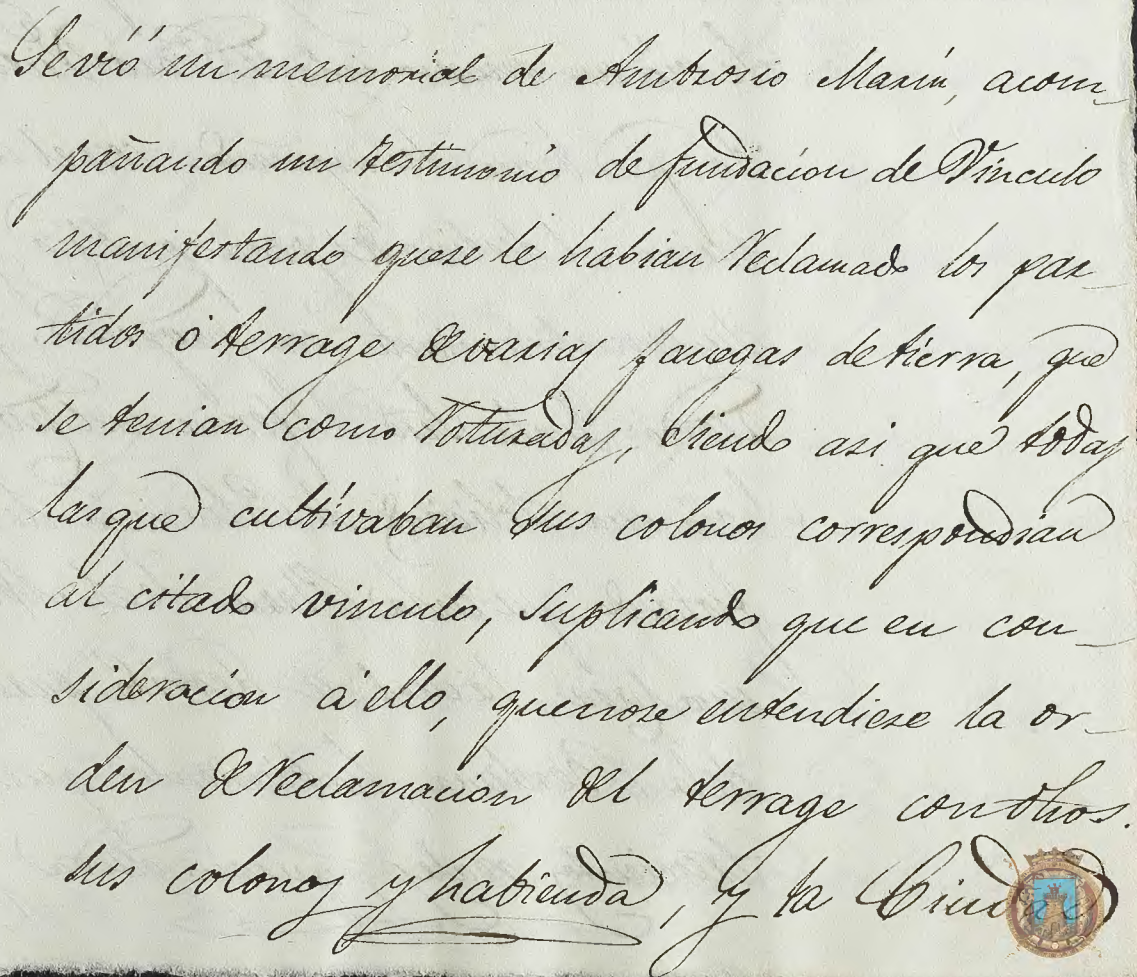 Se vió un memorial de Ambrosio Marin, acom-
pañando un testimonio de fundacion de Vinculo
manifestando que se le habian reclamado los par-
tidos ó terrage de varias fanegas de tierra, que
se tenian como roturadas, siendo asi que todas
las que cultivaban sus colonos correspondian
al citado vinculo, suplicando que en con-
sideracion á ello, que no se entendiese la or-
den de reclamacion del terrage con dhos.
sus colonos y habienda, y la Ciudad